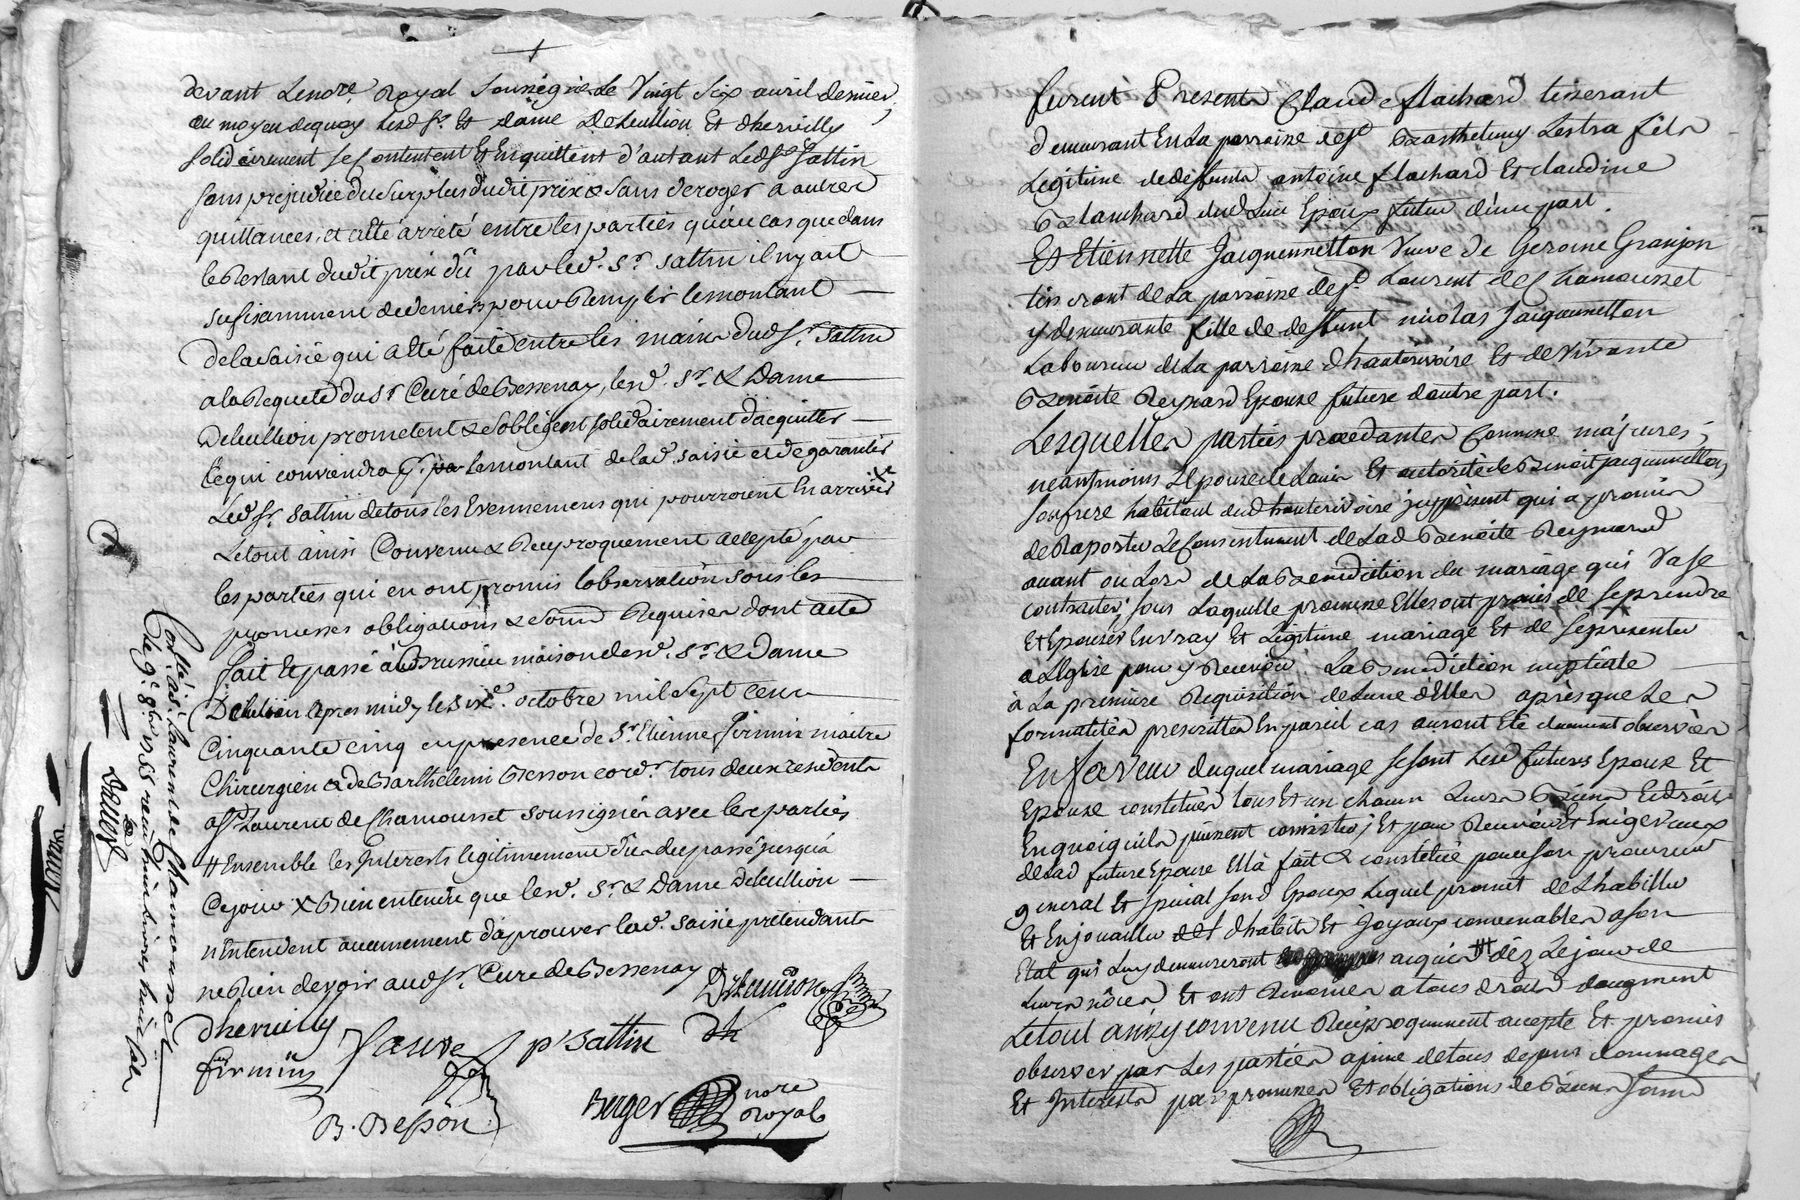 devant Le nore. Royal soussigné Le Vingt six avril dernier,
au moyen dequoy Lesd. srs. Et dame Et dhervilly
solidairement se Contentent Et En quittent d'autant Ledsr. Sattin
sans prejudice du surplus dudit prix & sans deroger a autres
quittances, et a eté arrêté entre les parties qu'au cas que dans
le Restant dudit prix dû par led. sr. sattin il n'y ait
sufisamment de deniers pour Remplir le montant
de la saisie qui a eté faite entre les mains dud sr. Sattin
a la Requete du sr Curé de Bessenay, lesd. sr. & Dame
prometent & s'obligent solidairement d'acquitter
Ce qui conviendra pr. le montant de lad. saisie et de garantir
Led sr. Sattin de tous les Evennemens qui pourroient En arriver
Le tout ainsi Convenu & Reciproquement accepté par
les parties qui en ont promis l'observation sous les
promesses obligations & soumd Requises dont acte
fait Et passé à maison desd. sr. & Dame
apres midy le six e. octobre mil sept cens
Cinquante cinq en presence de Sr. Etienne Firmin maitre
Chirurgien & de Barthelemi Besson cordr. tous deux residents
a st. Laurent de Chamousset soussignés avec les parties
# Ensemble les Interests legitimement dûs du passé jusqu'à
Ce jour X Bien entendu que lesd. Sr. & Dame
n'Entendent aucunement d'aprouver lad. saisie pretendant
ne Rien devoir aud sr. Curé de Bessenay
dhervilly
firmin Sauve p Sattin
B. Besson
Berger nore
Royal
Collé à St. Laurent de Chamousset
furent Presents Claude flachard tisserant
demeurant En La parroisse de st Barthelemy Lestra fils
Legitime de deffunts antoine flachard Et claudine
Blanchard dud Lieu Epoux futur d'une part.
Et Etiennette Jacquemetton Veuve de Gerome Granjon
tisserant de La parroisse de st Laurent de Chamousset
y demeurante fille de deffunt nicolas Jacquemetton
Laboureur de La parroisse d'hauterivoire Et de vivante
Benoite Reynard Epouse future d'autre part.
Lesquelles parties procedantes Comme majeures;
neantmoins L'Epouse de L'avis Et autorité de Benoit jacquemetton
son frere habitant dud hauterivoire icy present qui a promis
de Raporter Le Consentement de Lad Benoite Reynard
avant ou Lors de La Benediction du mariage qui Va se
contracter; sous Laquelle promesse Elles ont promis de se prendre
Et Epouser En vray Et Legitime mariage Et de se presenter
a L'Eglise pour y Recevoir La Benediction nuptiale
à La premiere Requisition de L'une d'Elles après que Les
formalités prescrittes En pareil cas auront Eté duement observées
En faveur duquel mariage se sont Lesd futurs Epoux Et
Epouse constitués tous Et un chacun Leurs Biens Et droits
En quoi qu'ils puissent consister; Et pour Recevoir Et Exiger ceux
de Lad future Epouse Elle a fait & constitué pour son procureur
general Et special sond Epoux Lequel promet de L'habiller
Et Enjouailler d'habits Et Joyaux convenables a son
Etat qui Luy demeureront acquis # dèz Le jour de
Leurs nôces Et ont Renoncé a tous droits d'augment
Le tout ainsy convenu Reciproquement accepté Et promis
observer par Les parties a peine de tous depens dommages
Et Interests par promesses Et obligations de Biens soumd